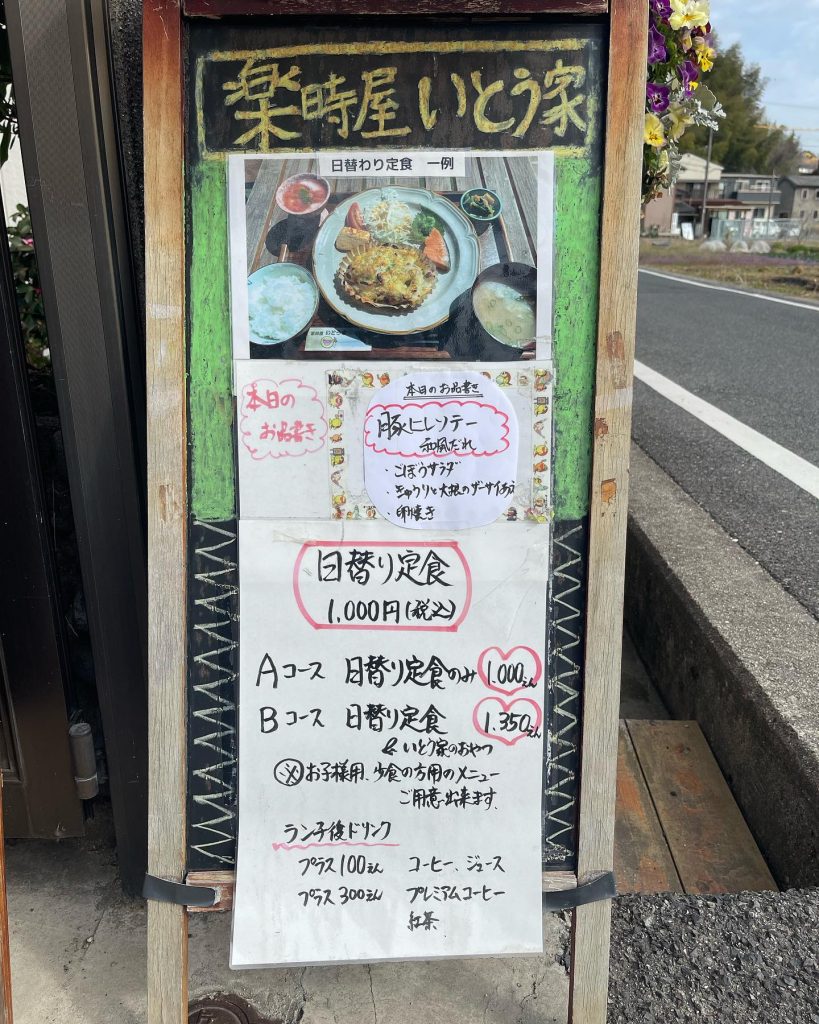 楽時屋 いとう家
日替わり定食 一例
本日の
お品書き
本日のお品書き
豚ヒレソテー
和風だれ
・ごぼうサラダ
・きゅうりと大根のザーサイあえ
・卵焼き
日替り定食
1,000円(税込)
Aコース 日替り定食のみ 1.000えん
Bコース 日替り定食 1.350えん
& いとう家のおやつ
※お子様用、少食の方用のメニュー
ご用意出来ます。
ランチ後ドリンク
プラス100えん コーヒー、ジュース
プラス300えん プレミアムコーヒー
紅茶